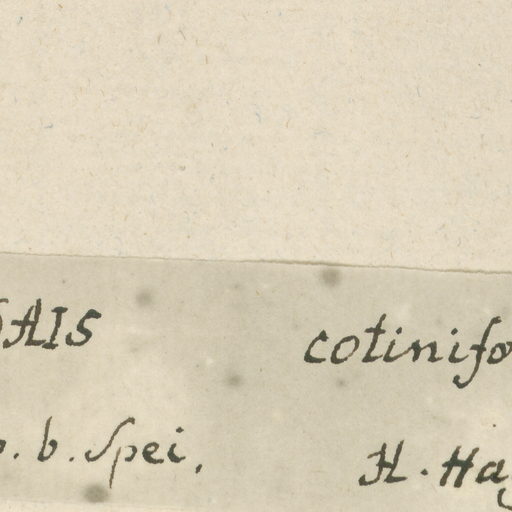 AIS cotinifo
b. Spei. H. Hag